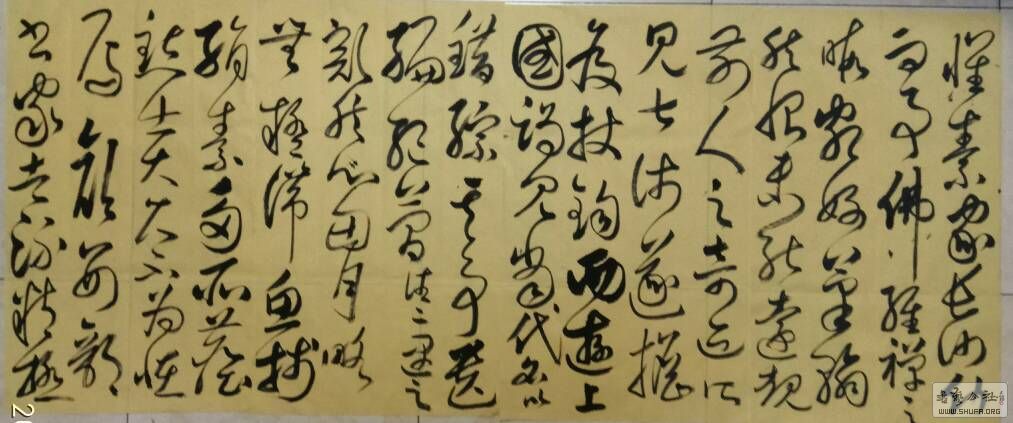 懷素家長沙幼
而事佛經禪之
暇頗好筆翰
然恨未能遠覩
前人之奇迹所
見甚淺遂擔
笈杖錫西遊上
國謁見當代名公
錯綜其事遺
編絕簡往往遇之
豁然心胸略
無疑滯魚牋
絹素多所塵
點士大夫不以為怪
焉顏刑部
書家者流精極
WWW.SHUFA.ORG